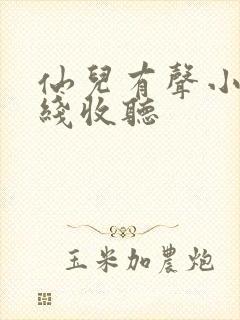 仙兒有聲小
綫收聽
玉米加農炮